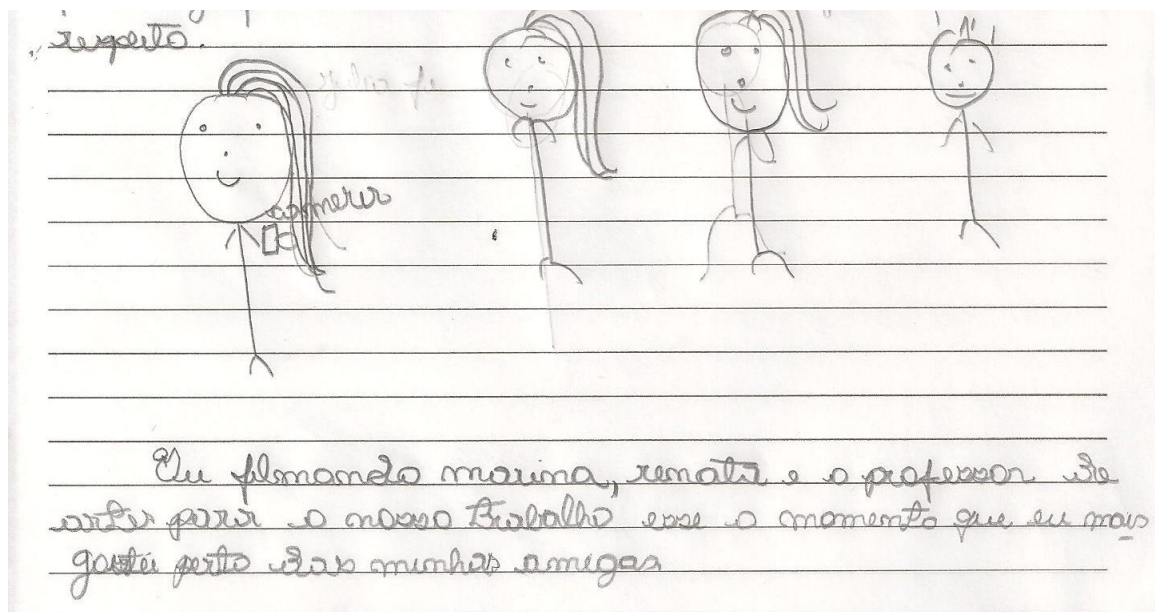 respeito.
Eu filmando marina, renata e o professor de
artes para o nosso trabalho esse o momento que eu mais
gostei perto das minhas amigas